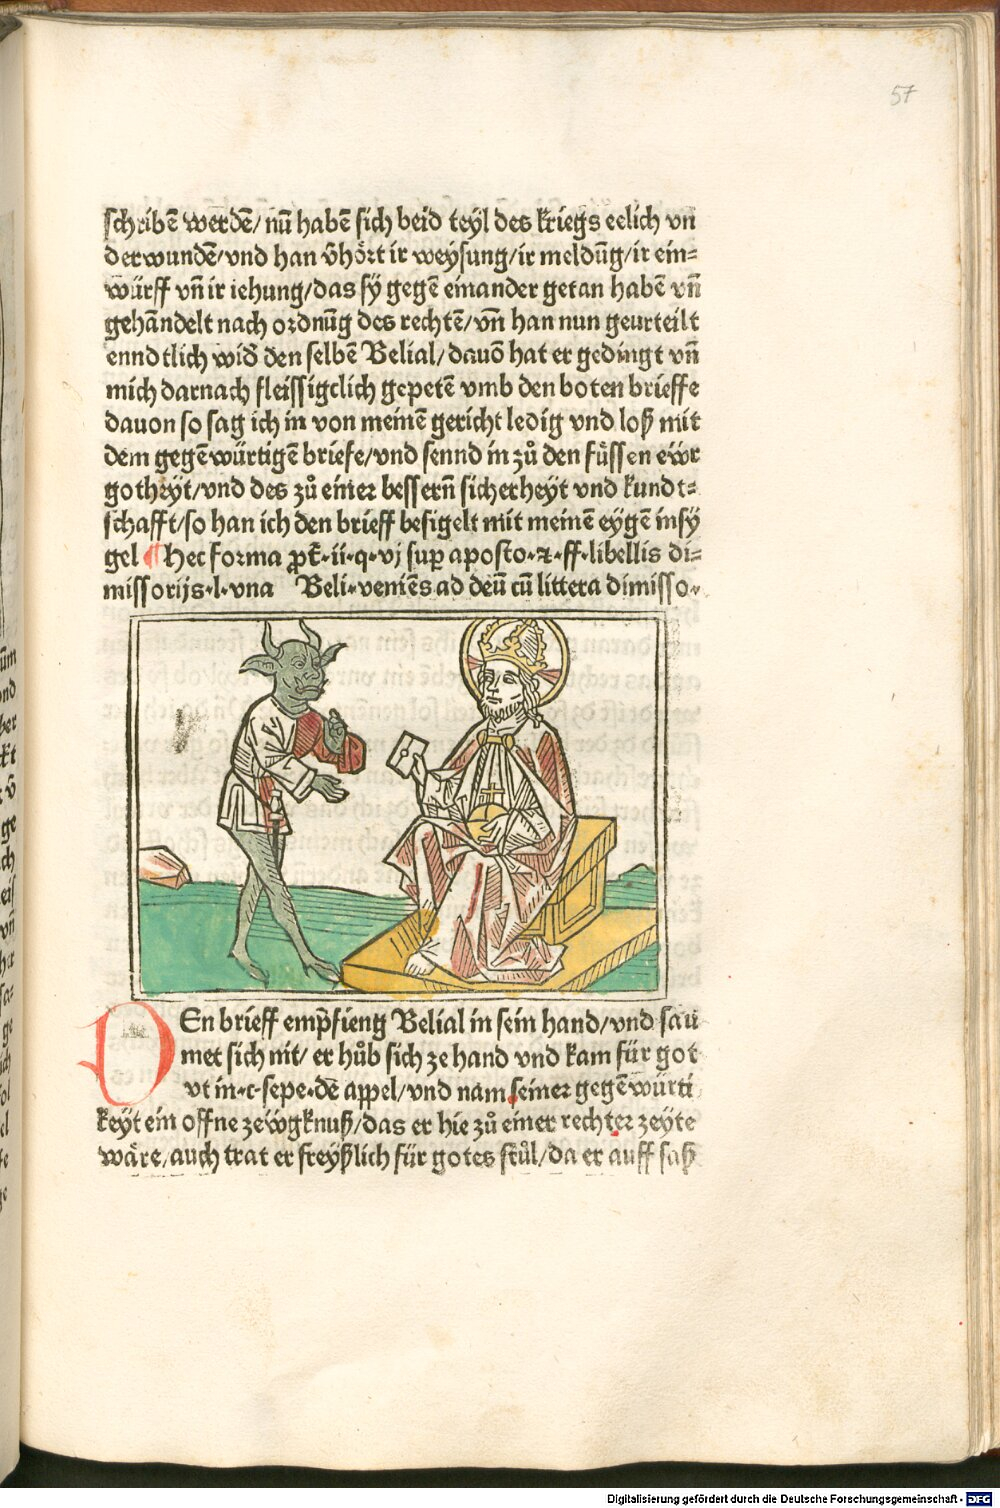 57
schribē werdē/ nū habē sich beid teyl des kriegs eelich vn
derwundē/vnd han v̄hoͤrt ir weysung/ir meldūg/ir ein=
würff vn̄ ir iehung/das sy gegē einander getan habē vn̄
gehādelt nach ordnūg des rechtē/vn̄ han nun geurteilt
enndtlich wid̄ den selbē Belial/dauō hat er gedingt vn̄
mich darnach fleissigclich gepetē vmb den boten brieffe
dauon so sag ich in von meinē gericht ledig vnd loß mit
dem gegēwürtigē briefe/vnd sennd in zuͦ den fuͤssen eẅr
gotheyt/vnd des zuͦ einer bessern̄ sicherheyt vnd kundt=
schafft/so han ich den brieff besigelt mit meinē eygē insy
gel ¶ Hec forma ꝓt̄·ii·q·vj sup̄ aposto·⁊·ff·libellis di=
missorijs·l·vna Beli·veniēs ad deū cū littera dimisso·
DEn brieff emp̄fieng Belial in sein hand/vnd sau
met sich nit/ er huͦb sich ze hand vnd kam für got
vt in·c·sepe·dē appel/vnd nam seiner gegēwürti
keyt ein offne zeẅgknuß/das er hie zuͦ einer rechter zeyte
waͤre/auch trat er freyßlich für gotes stuͦl/da er auff saß
Digitalisierung gefördert durch die Deutsche Forschungsgemeinschaft - DFG